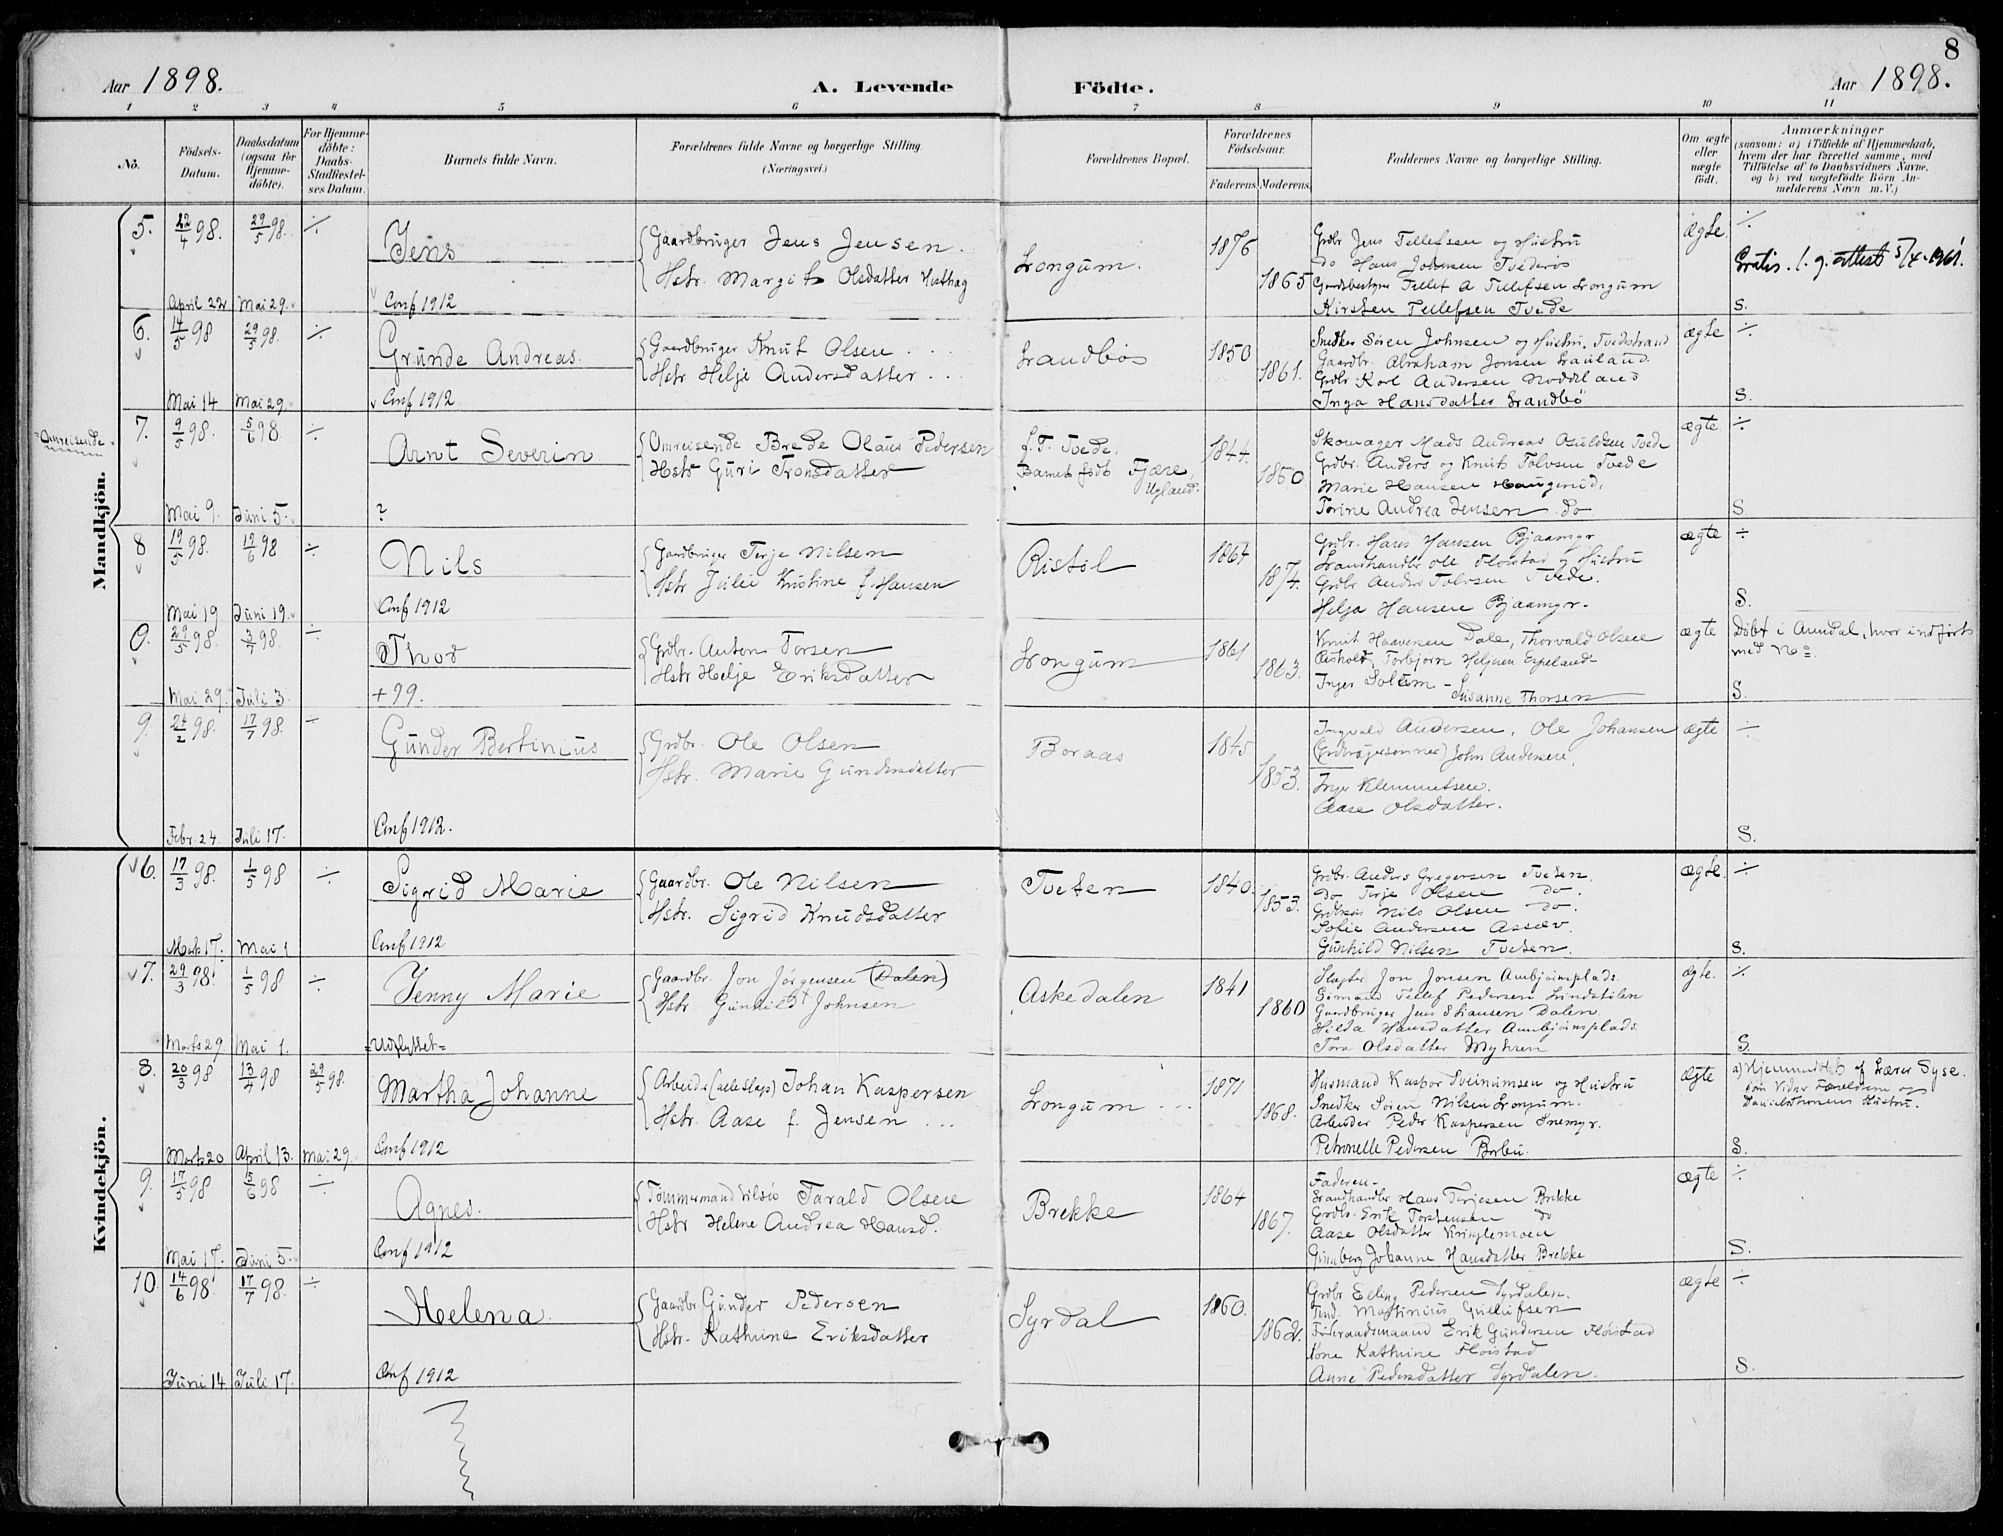 8
Aar 1898.
A. Levende Födte.
Aar 1898.
1 2 3 4 5 6 7 8 9 10 11
Nö.
Födsels-Datum.
Daabsdatum (ogsaa for Hjemme-döbte).
For Hjemme-döbte: Daabs-Stadfæstel-ses Datum.
Barnets fulde Navn.
Forældrenes fulde Navne og borgerlige Stilling.
(Næringsvei.)
Forældrenes Bopæl.
Forældrenes Födselsaar.
Faderens. Moderens.
Faddernes Navne og borgerlige Stilling.
Om ægte eller uægte födt.
Anmærkninger
(saasom: a) i Tilfælde af Hjemmedaab,
hvem der har forrettet samme, med
Tilföielse af to Daabsvidners Navne,
og b) ved uægtefödte Börn An-
melderens Navn m.V.)
Mandkjön.
5. 22/4 98. 29/5 98. ÷
Jens
Gaardbruger Jens Jensen.
Hstr. Margit Olsdatter
Longum.
1876
1865
Grdbr Jens Tellefsen og Hustru
do Hans Johnsen
Tellef A Tellefsen Longum
Kirsten Tellefsen Tvede
ægte. ÷
Gratis. attest 5/4-1961.
April 22 Mai 29. Conf 1912 S.
6. 14/5 98 29/5 98. ÷
Grunde Andreas.
Gaardbruger Knut Olsen
Hstr Helje Andersdatter
Landbös
1850
1861.
Snedker Sören Johnsen og Hustru, Tvedestrand
Gaardbr. Abraham Jensen
Grdbr Karl Andersen
Inga Hansdatter Landbö
ægte ÷
Mai 14 Mai 29. Conf 1912 S.
Omreisende
7. 9/5 98. 5/6 98 ÷
Arnt Severin
Omreisende Brede Olaus Pedersen
Hstr Guri Tronsdatter
f. T. Tvede,
Barnet födt Fjære,
Ugland.
1844.
1850
Skomager Mads Andreas Tvede
Grdbr. Anders og Knut Tolvsen Tvede
Marie Hansen Haugerud,
Torine Andrea Jensen do
ægte ÷
Mai 9. Juni 5. ? S
8 19/5 98. 19/6 98 ÷
Nils
Gardbruger Terje Nilsen
Hstr Julie Kristine f. Hansen
Ristöl
1867
1874.
Grdbr. Hans Hansen Bjaamyr
Landhandler Ole Flöistad og Hustru
Grdbr Anders Tolvsen Tvede.
Helja Hansen Bjaamyr.
ægte ÷
Mai 19 Juni 19. Conf 1912 S.
0. 29/5 98 3/7 98. ÷
Thor
Grdbr. Anton Torsen
Hstr Helje Eriksdatter
Longum
1861
1863.
Knut Haaversen Dale, Thorvald Olsen
Torbjörn Heljesen Espeland
Inger Soltem - Susanne Thorsen
ægte
Döbt i Arendal, hvor indfört
med No
Mai 29. Juli 3. +99. S.
9. 24/2 98. 17/7 98. ÷
Gunder Bertinius
Grdbr. Ole Olsen
Hstr. Marie Gundersdatter
Boraas
1845
1853.
Ingvald Andersen, Ole Johansen
John Andersen,
Inger Klemmetsen.
Aase Olsdatter.
ægte ÷
Febr. 24 Juli 17. Conf 1912. S.
Kvindekjön.
6. 17/3 98. 1/5 98 ÷
Sigrid Marie
Gaardbr. Ole Nilsen
Hstr. Sigrid Knudsdatter
Tveten
1840.
1853.
Grdbr. Anders Gregersen Tveten,
do Terje Olsen do.
Nils Olsen do.
Sofie Andersen Assæv.
Gunhild Nilsen Tveten.
ægte. ÷
Marts 17. Mai 1 Conf 1912 S.
7. 29/3 98. 1/5 98 ÷
Jenny Marie
Gaardbr. Jon Jörgensen (Dalen)
Hstr Gunhild Johnsen
Askedalen
1841
1860
Slagter Jon Jonsen Ambjörnsplads.
Sömand Tellef Pedersen Lindstölen
Gaardbruger Jens Dalen.
Hilda Hansdatter Ambjörnsplads.
Tora Olsdatter Myhren
ægte. ÷
Marts 29. Mai 1. =Udflyttet= S.
8. 20/3 98 13/4 98 29/5 98.
Martha Johanne
Arbeids Johan Kaspersen
Hstr. Aase f. Jensen
Longum
1871
1868.
Husmand Kaspar Sveinumsen og Hustru
Snedker Sören Nilsen Longum.
Arbeider Peder Kaspersen Snemyr.
Petronelle Pedersen Barbu.
ægte
a) Hjemmedöbt af Lærer Syse.
som Vidner Forældrene og
Danielsens Hustru.
Marts 20 April 13. Mai 29. Conf 1912 S.
9. 17/5 98 5/6 98 ÷
Agnes.
Tömmermand Tarald Olsen
Hstr Helene Andrea Hansd.
Brekke
1864
1867.
Faderen-
Landhandler Hans Terjesen Brekke
Grdbr. Erik Torstensen do
Aase Olsdatter Kringlemoen
Gunborg Johanne Hansdatter Brekke
ægte ÷
Mai 17. Juni 5. Conf 1912 S.
10. 14/6 98 17/7 98. ÷
Helena.
Gaardbr. Gunder Pedersen
Hstr. Kathrine Eriksdatter
Syrdal
1860.
1862.
Grdbr Elling Pedersen Syrdalen.
Und. Martinius Gullufsen
Föderaadsmand Erik Gundersen Flöistad
Kone Kathrine Flöistad
Anne Pedersdatter Syrdalen.
ægte ÷
Juni 14 Juli 17. Conf 1912 S.